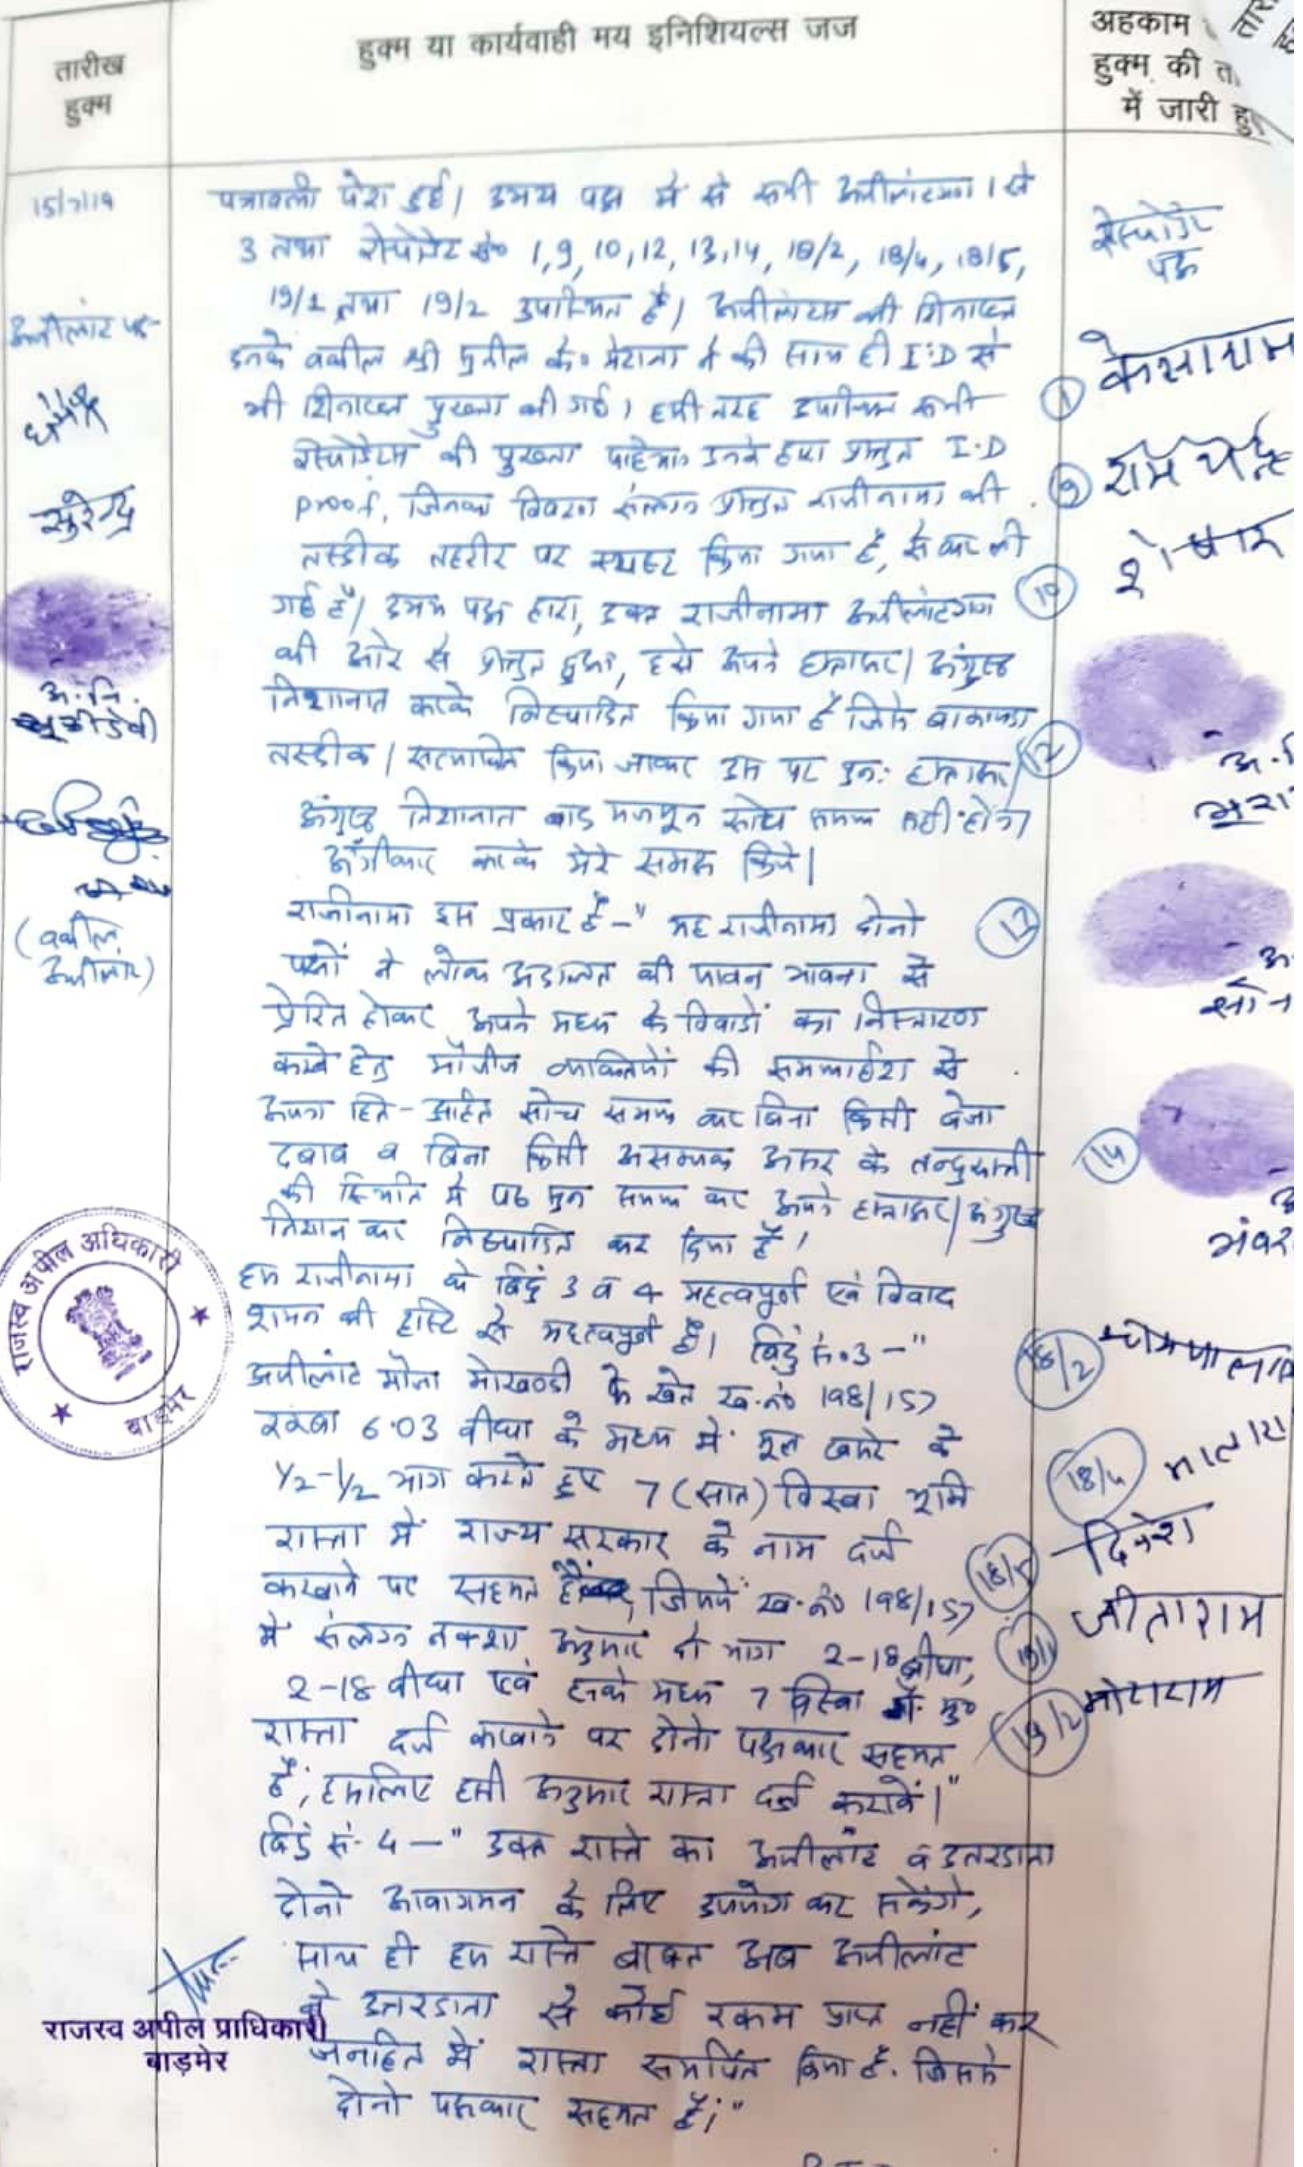 तारीख
हुक्म
हुक्म या कार्यवाही मय इनिशियल्स जज
अहकाम
हुक्म की
में जारी
15/7/19
पत्रावली पेश हुई। उभय पक्ष में से सभी अपीलांटगण 1 से
3 तथा रेस्पोडेंट सं० 1, 9, 10, 12, 13, 14, 18/2, 18/4, 18/5,
19/1 तथा 19/2 उपस्थित है। अपीलांटस की शिनाख्त
उनके वकील श्री सुनील के० मेराना ने की साथ ही I.D से
भी शिनाख्त पुख्ता की गई। इसी तरह उपस्थित सभी
रेस्पोडेंटस की पुख्ता पहिचान उनके द्वारा प्रस्तुत I.D
proof, जिनका विवरण संलग्न प्रस्तुत राजीनामा की
तस्दीक तहरीर पर स्पष्ट किया गया है, से कर ली
गई है। उभय पक्ष द्वारा, उक्त राजीनामा अपीलांटगण
की ओर से प्रस्तुत हुआ, इसे अपने हस्ताक्षर/अंगुष्ठ
निशानात करके निष्पादित किया गया है जिसे बाकायदा
तस्दीक/सत्यापित किया जाकर उस पर पुनः हस्ताक्षर/
अंगुष्ठ निशानात बाद मजमून सोच समझ सही होना
अंगीकार करके मेरे समक्ष किये।
राजीनामा इस प्रकार है-" यह राजीनामा दोनो
पक्षों ने लोक अदालत की पावन भावना से
प्रेरित होकर अपने मध्य के विवादों का निस्तारण
करने हेतु मौजीज व्यक्तियों की समझाईश से
अपना हित-अहित सोच समझ कर बिना किसी बेजा
दबाव व बिना किसी असम्यक असर के तन्दुरूस्ती
की स्थिति में पढ सुन समझ कर अपने हस्ताक्षर/अंगुष्ठ
निशान कर निष्पादित कर दिया है।
इस राजीनामा के बिंदु 3 व 4 महत्वपूर्ण एवं विवाद
शमन की दृष्टि से महत्वपूर्ण है। बिंदु सं.3 -"
अपीलांट मौजा मोखण्डी के खेत ख.नं० 198/157
रकबा 6.03 बीघा के मध्य में मूल खसरे के
1/2-1/2 भाग करते हुए 7 (सात) बिस्वा भूमि
रास्ता में राज्य सरकार के नाम दर्ज
करवाने पर सहमत है, जिसमें ख.नं० 198/157
में संलग्न नक्शा अनुसार दो भाग 2-18 बीघा,
2-18 बीघा एवं इनके मध्य 7 बिस्वा मु०
रास्ता दर्ज करवाने पर दोनो पक्षकार सहमत
हैं, इसलिए इसी अनुसार रास्ता दर्ज करावें।"
बिंदु सं. 4 -" उक्त रास्ते का अपीलांट व उत्तरदाता
दोनो आवागमन के लिए उपयोग कर सकेंगे,
साथ ही इस रास्ते बाबत अब अपीलांट
ने उत्तरदाता से कोई रकम प्राप्त नहीं कर
जनहित में रास्ता समर्पित किया है. जिससे
दोनो पक्षकार सहमत हैं।"
अपीलांट पक्ष
सुरेन्द्र
अ.नि.
(वकील
अपीलांट)
राजस्व अपील अधिकारी
बाड़मेर
राजस्व अपील प्राधिकारी
बाड़मेर
रेस्पोडेंट
पक्ष
1 केसाराम
9
10
12
13
14
18/2
18/4
18/5 दिनेश
19/1 जीताराम
19/2